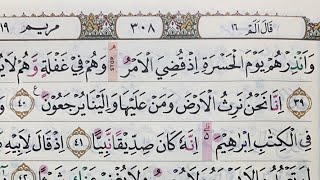 قَالَ اَلَمْ ١٦ ٣٠٨ مريم ١٩
وَاَنْذِرْهُمْ يَوْمَ الْحَسْرَةِ اِذْ قُضِيَ الْاَمْرُ وَهُمْ فِيْ غَفْلَةٍ وَّهُمْ لَا
٣٩ اِنَّا نَحْنُ نَرِثُ الْاَرْضَ وَمَنْ عَلَيْهَا وَاِلَيْنَا يُرْجَعُوْنَ ࣖ ٤٠
فِى الْكِتٰبِ اِبْرٰهِيْمَ ەۗ اِنَّهٗ كَانَ صِدِّيْقًا نَّبِيًّا ٤١ اِذْ قَالَ لِاَبِيْهِ